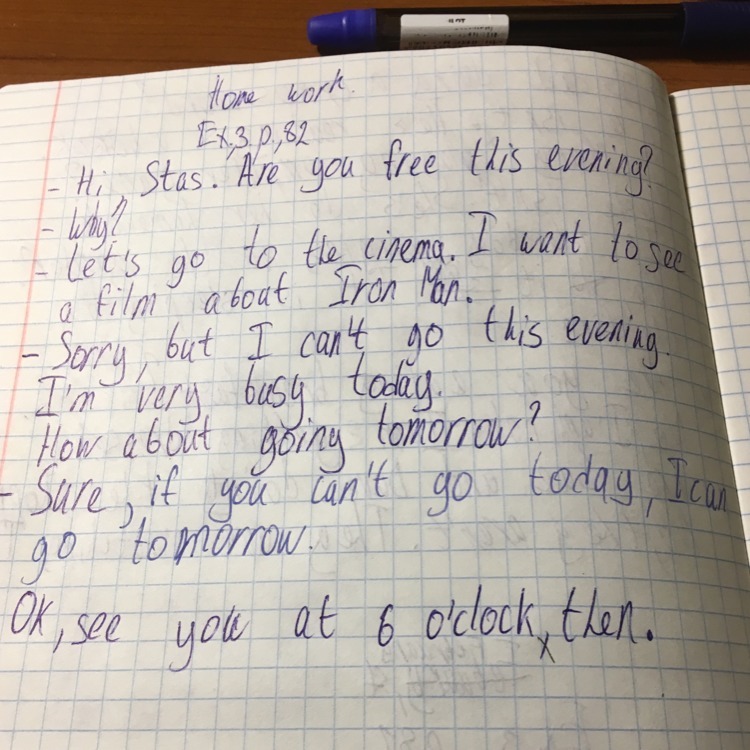 Home work.
Ex,3,p,82
- Hi Stas. Are you free this evening?
- Why?
- Let's go to the cinema. I want to see
a film about Iron Man.
- Sorry, but I can't go this evening.
I'm very busy today.
How about going tomorrow?
- Sure, if you can't go today, I can
go tomorrow.
OK, see you at 6 o'clock, then.